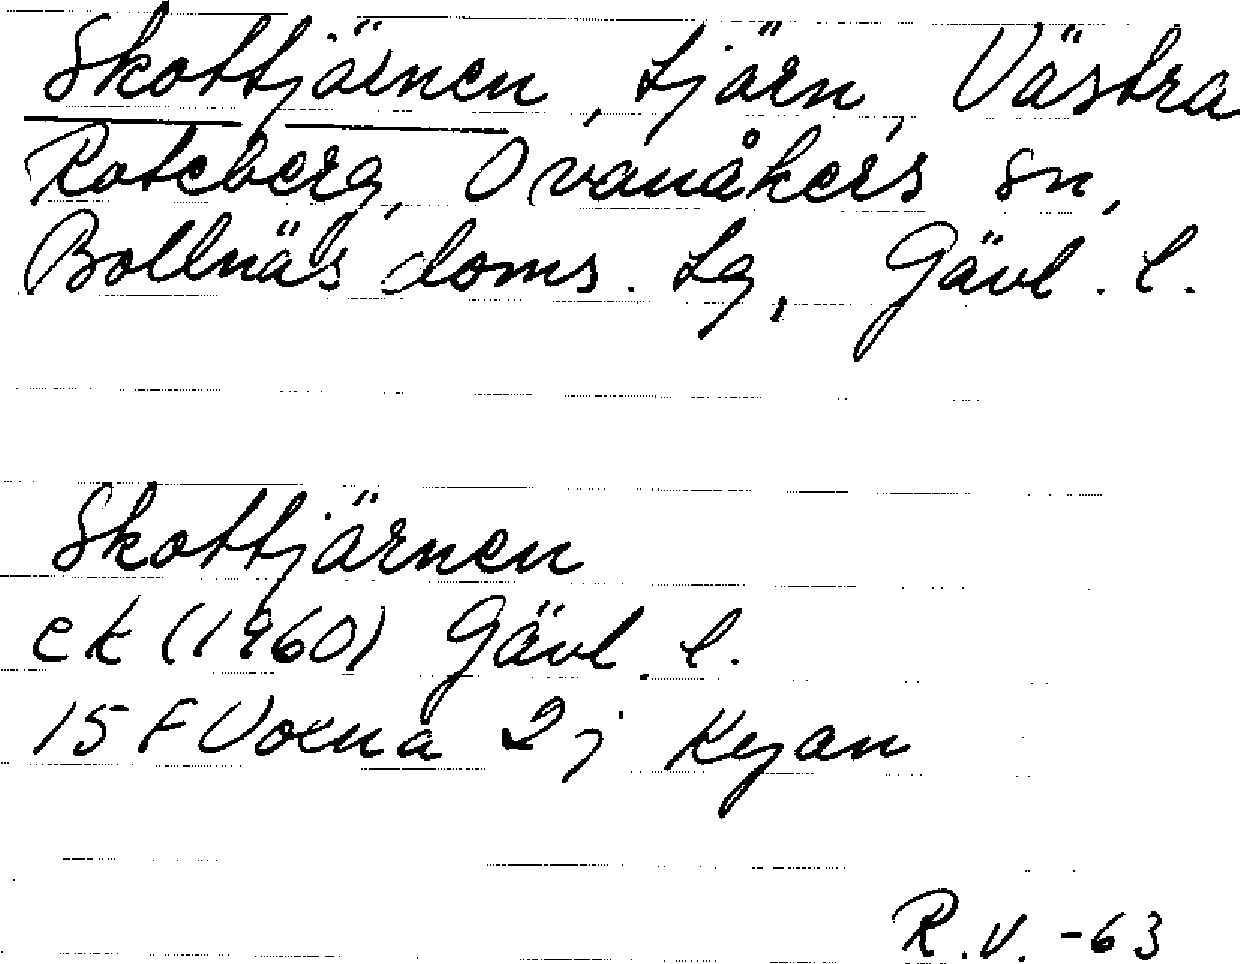 Skottjärnen, tjärn, Västra
Roteberg, Ovanåkers sn,
Bollnäs doms. tg, Gävl. l.
Skottjärnen
ek (1960) Gävl. l.
15 F Voxna 2 j Kyan
R.V. -63